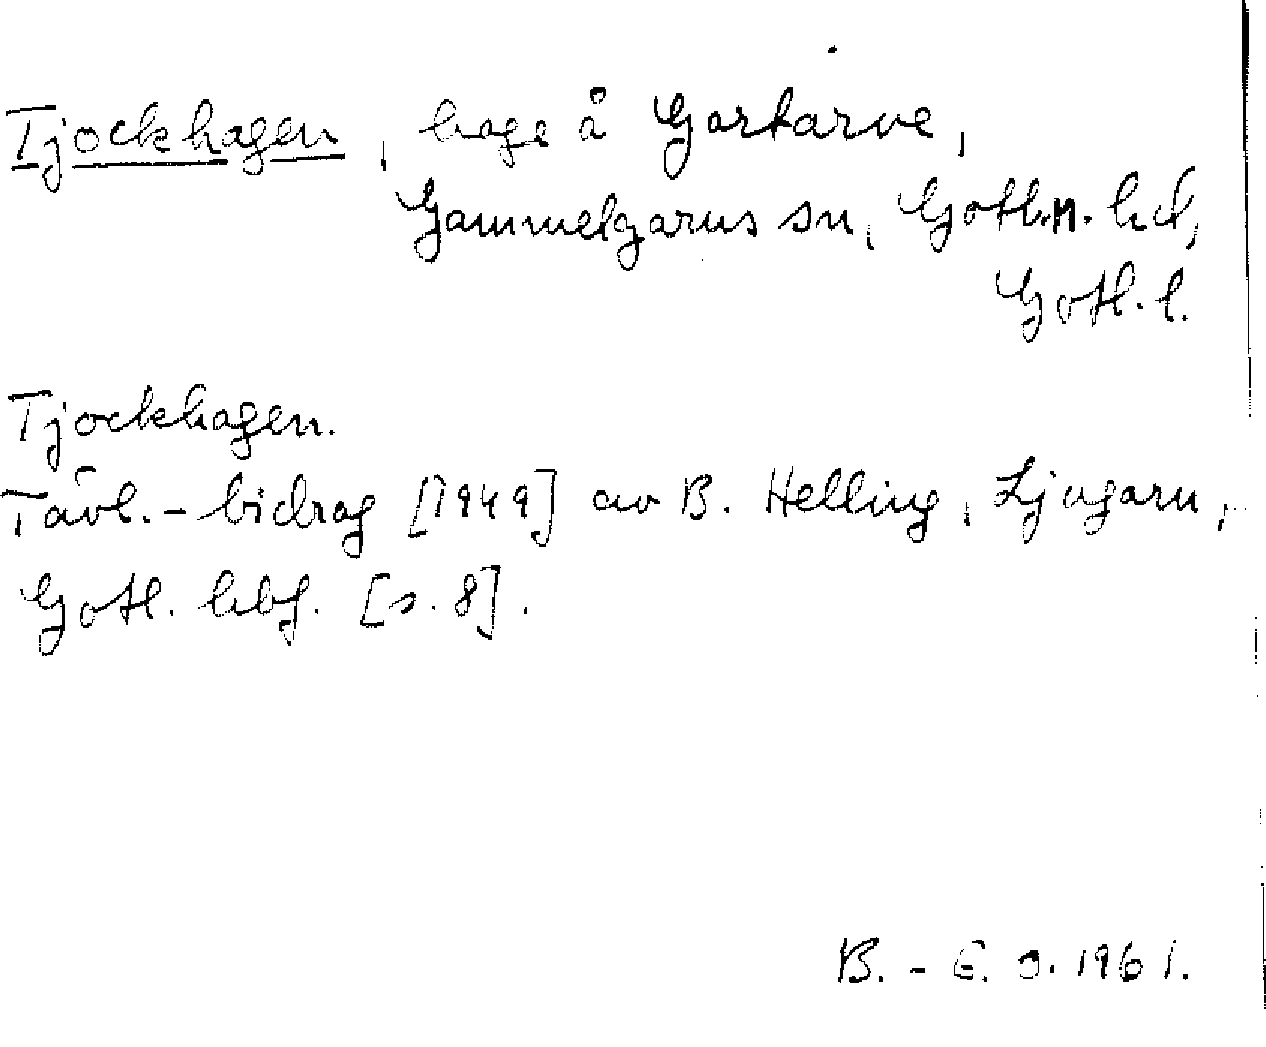 Tjockhagen, hage å Gartarve,
Gammelgarns sn, Gotl.n. hd,
Gotl. l.
Tjockhagen.
Tävl.-bidrag [1949] av B. Helling, Ljugarn,
Gotl. hbf. [s. 8].
B. - E. O. 1961.